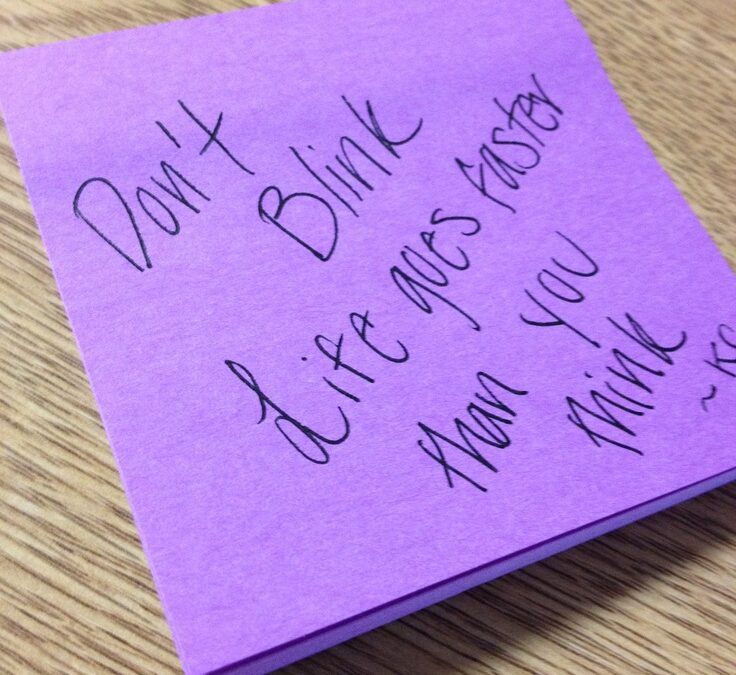 Don't Blink
Life goes faster
than you think